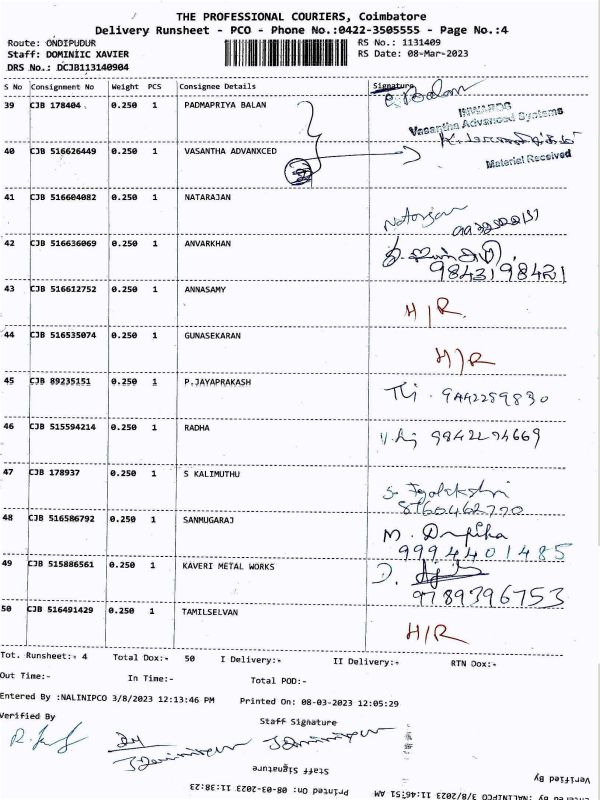 THE PROFESSIONAL COURIERS, Coimbatore
Delivery Runsheet - PCO - Phone No.:0422-3505555 - Page No.:4
Route: ONDIPUDUR
RS No.: 1131409
Staff: DOMINIIC XAVIER
RS Date: 08-Mar-2023
DRS No.: DCJB113140904
S No Consignment No Weight PCS Consignee Details Signature
39 CJB 178404 0.250 1 PADMAPRIYA BALAN
INWARDS
Vasantha Advanced Systems
40 CJB 516626449 0.250 1 VASANTHA ADVANXCED
Material Received
41 CJB 516604082 0.250 1 NATARAJAN
Natarajan
42 CJB 516636069 0.250 1 ANVARKHAN
9843198421
43 CJB 516612752 0.250 1 ANNASAMY
H/R
44 CJB 516535074 0.250 1 GUNASEKARAN
H/R
45 CJB 89235151 0.250 1 P.JAYAPRAKASH
9442259830
46 CJB 515594214 0.250 1 RADHA
47 CJB 178937 0.250 1 S KALIMUTHU
48 CJB 516586792 0.250 1 SANMUGARAJ
9994401485
49 CJB 515886561 0.250 1 KAVERI METAL WORKS
9789396753
50 CJB 516491429 0.250 1 TAMILSELVAN
H/R
Tot. Runsheet:- 4 Total Dox:- 50 I Delivery:- II Delivery:- RTN Dox:-
Out Time:- In Time:- Total POD:-
Entered By :NALINIPCO 3/8/2023 12:13:46 PM Printed On: 08-03-2023 12:05:29
Verified By Staff Signature
Staff Signature
Verified By
Printed On: 08-03-2023 11:38:23
Entered By :NALINIPCO 3/8/2023 11:46:51 AM